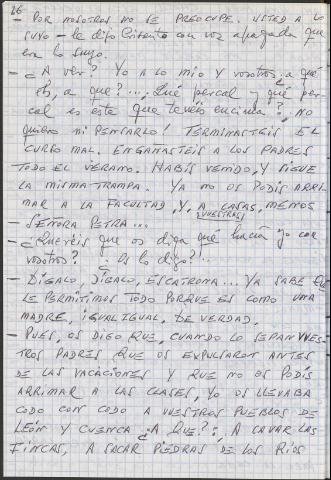 26
— POR NOSOTROS NO SE PREOCUPE. USTED A LO
SUYO – le dijo Cristanto con voz apagada que
era lo suyo.
— ¿A ver? Yo A lo mío y vosotros, a qué
eh, a que?..., ¿Qué percal y qué per-
cal es este que tenéis encima?, ¡NO
quiero ni PENSARLO! TERMINASTEIS EL
CURSO MAL. ENGAÑASTEIS A LOS PADRES
TODO EL VERANO. HABÉIS VENIDO, Y SIGUE
LA MISMA TRAMPA. YA NO OS PODÉIS ARRI-
MAR A LA FACULTAD, Y, A CASAS, MENOS
VUESTRAS
— SEÑORA PETRA...
— ¿Queréis que os diga qué haría yo con
vosotros? ¿Os lo digo?!..
— DÍGALO, DÍGALO, ESCATRONA... YA SABE QUE
LE PERMITIMOS TODO PORQUE ES COMO UNA
MADRE, IGUAL IGUAL. DE VERDAD.
— PUES, OS DIGO QUE, CUANDO LO SEPAN VUES-
TROS PADRES QUE OS EXPULSARON ANTES
DE LAS VACACIONES Y QUE NO OS PODÉIS
ARRIMAR A LAS CLASES, YO OS LLEVABA
CODO CON CODO A VUESTROS PUEBLOS DE
LEÓN Y CUENCA ¿A QUE?: A CAVAR LAS
FINCAS, A SACAR PIEDRAS DE LOS RÍOS